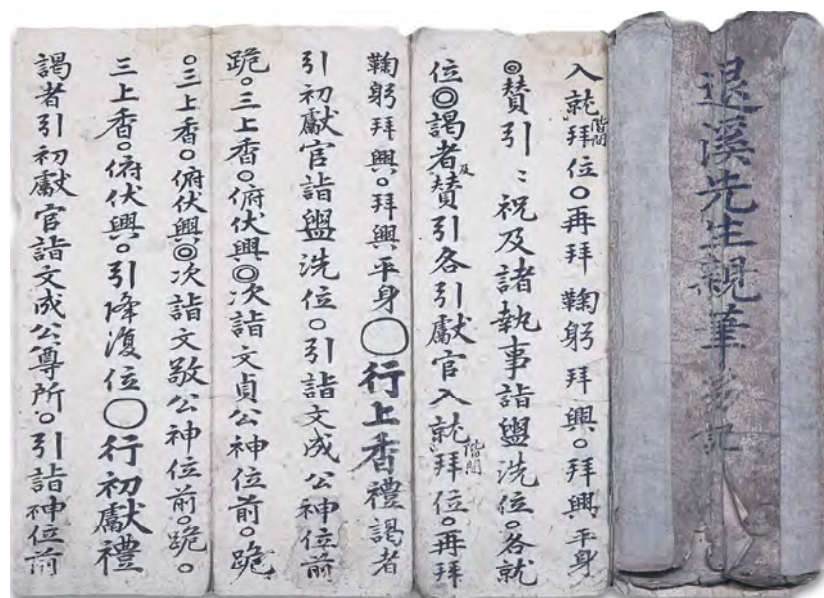 退溪先生親筆笏記
入就階間拜位○再拜鞠躬拜興○拜興平身
◎賛引〻祝及諸執事詣盥洗位○各就
位◎謁者及賛引各引獻官入就階間拜位○再拜
鞠躬拜興○拜興平身○行上香禮謁者
引初獻官詣盥洗位○引詣文成公神位前
跪○三上香○俯伏興◎次詣文貞公神位前○跪
○三上香○俯伏興◎次詣文敬公神位前○跪○
三上香○俯伏興○引降復位○行初獻禮
謁者引初獻官詣文成公尊所○引詣神位前